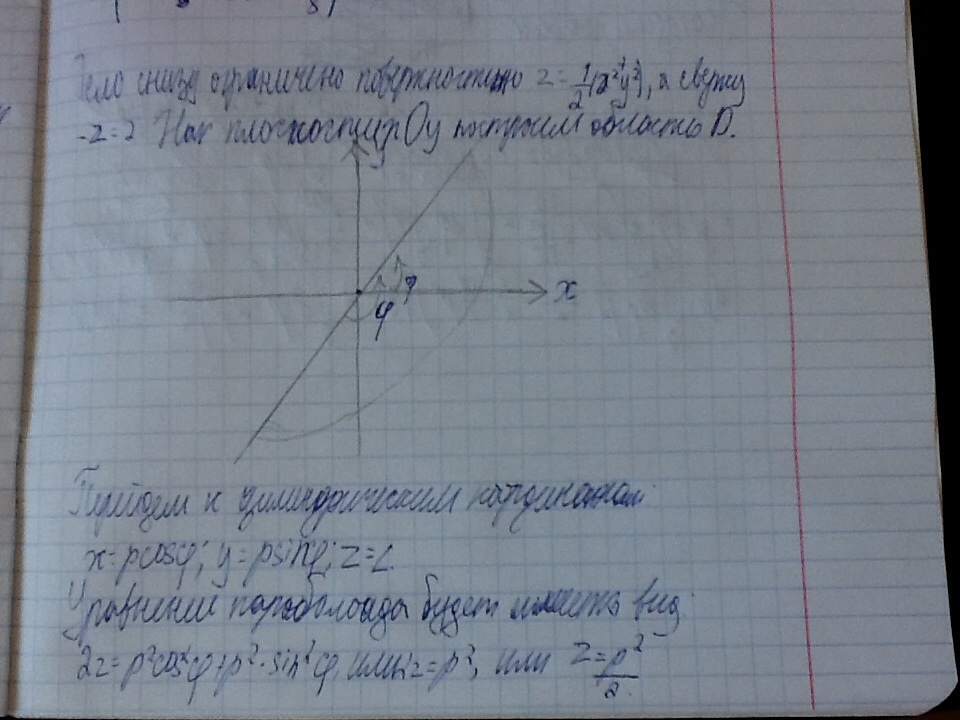 Тело снизу ограничено поверхностью z = 1/2(x²+y²), а сверху
-z=2 На плоскости xOy построим область D.
y
x
φ
Перейдем к цилиндрическим координатам:
x=ρcosφ; y=ρsinφ; z=z.
Уравнение параболоида будет иметь вид:
2z=ρ²cos²φ+ρ²·sin²φ, или 2z=ρ², или z=ρ²/2.